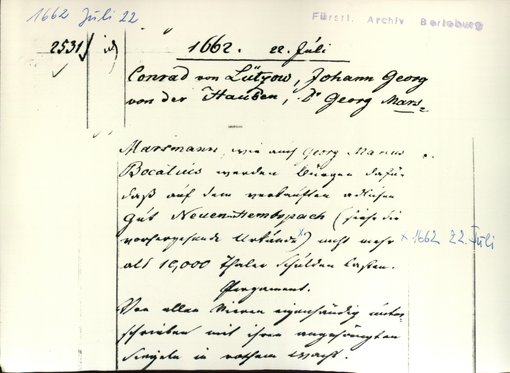 1662 Juli 22
Fürstl. Archiv Berleburg
2531
1662. 22. Juli
Conrad von Lützow, Johann Georg
von der Hauben, Dr Georg Mars-
Marsmann, wie auch Georg Marius
Bocatius werden Bürgen dafür
daß auf dem verkauften adlichen
Gut Neuen-Hemspach (siehe die
vorhergehende Urkunde) nicht mehr × 1662 22. Juli
als 10,000 Thaler Schulden lasten.
Pergament.
Von allen Vieren eigenhändig unter-
schrieben mit ihren angehängten
Siegeln in rothem Wachs.